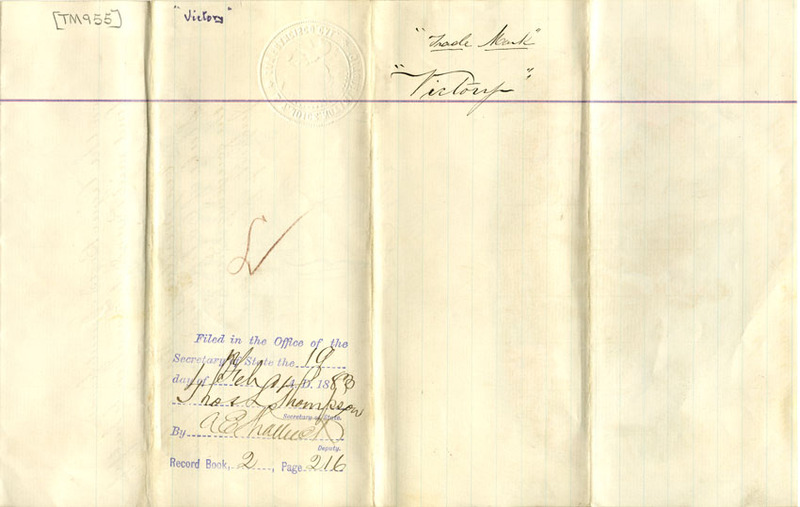 [TM955]
"Victory"
"Trade Mark"
"Victory"
Filed in the Office of the
Secretary of State the 19
day of Feby A.D. 1883
Thos L Thompson
Secretary of State.
By
Deputy.
Record Book, 2, Page 216